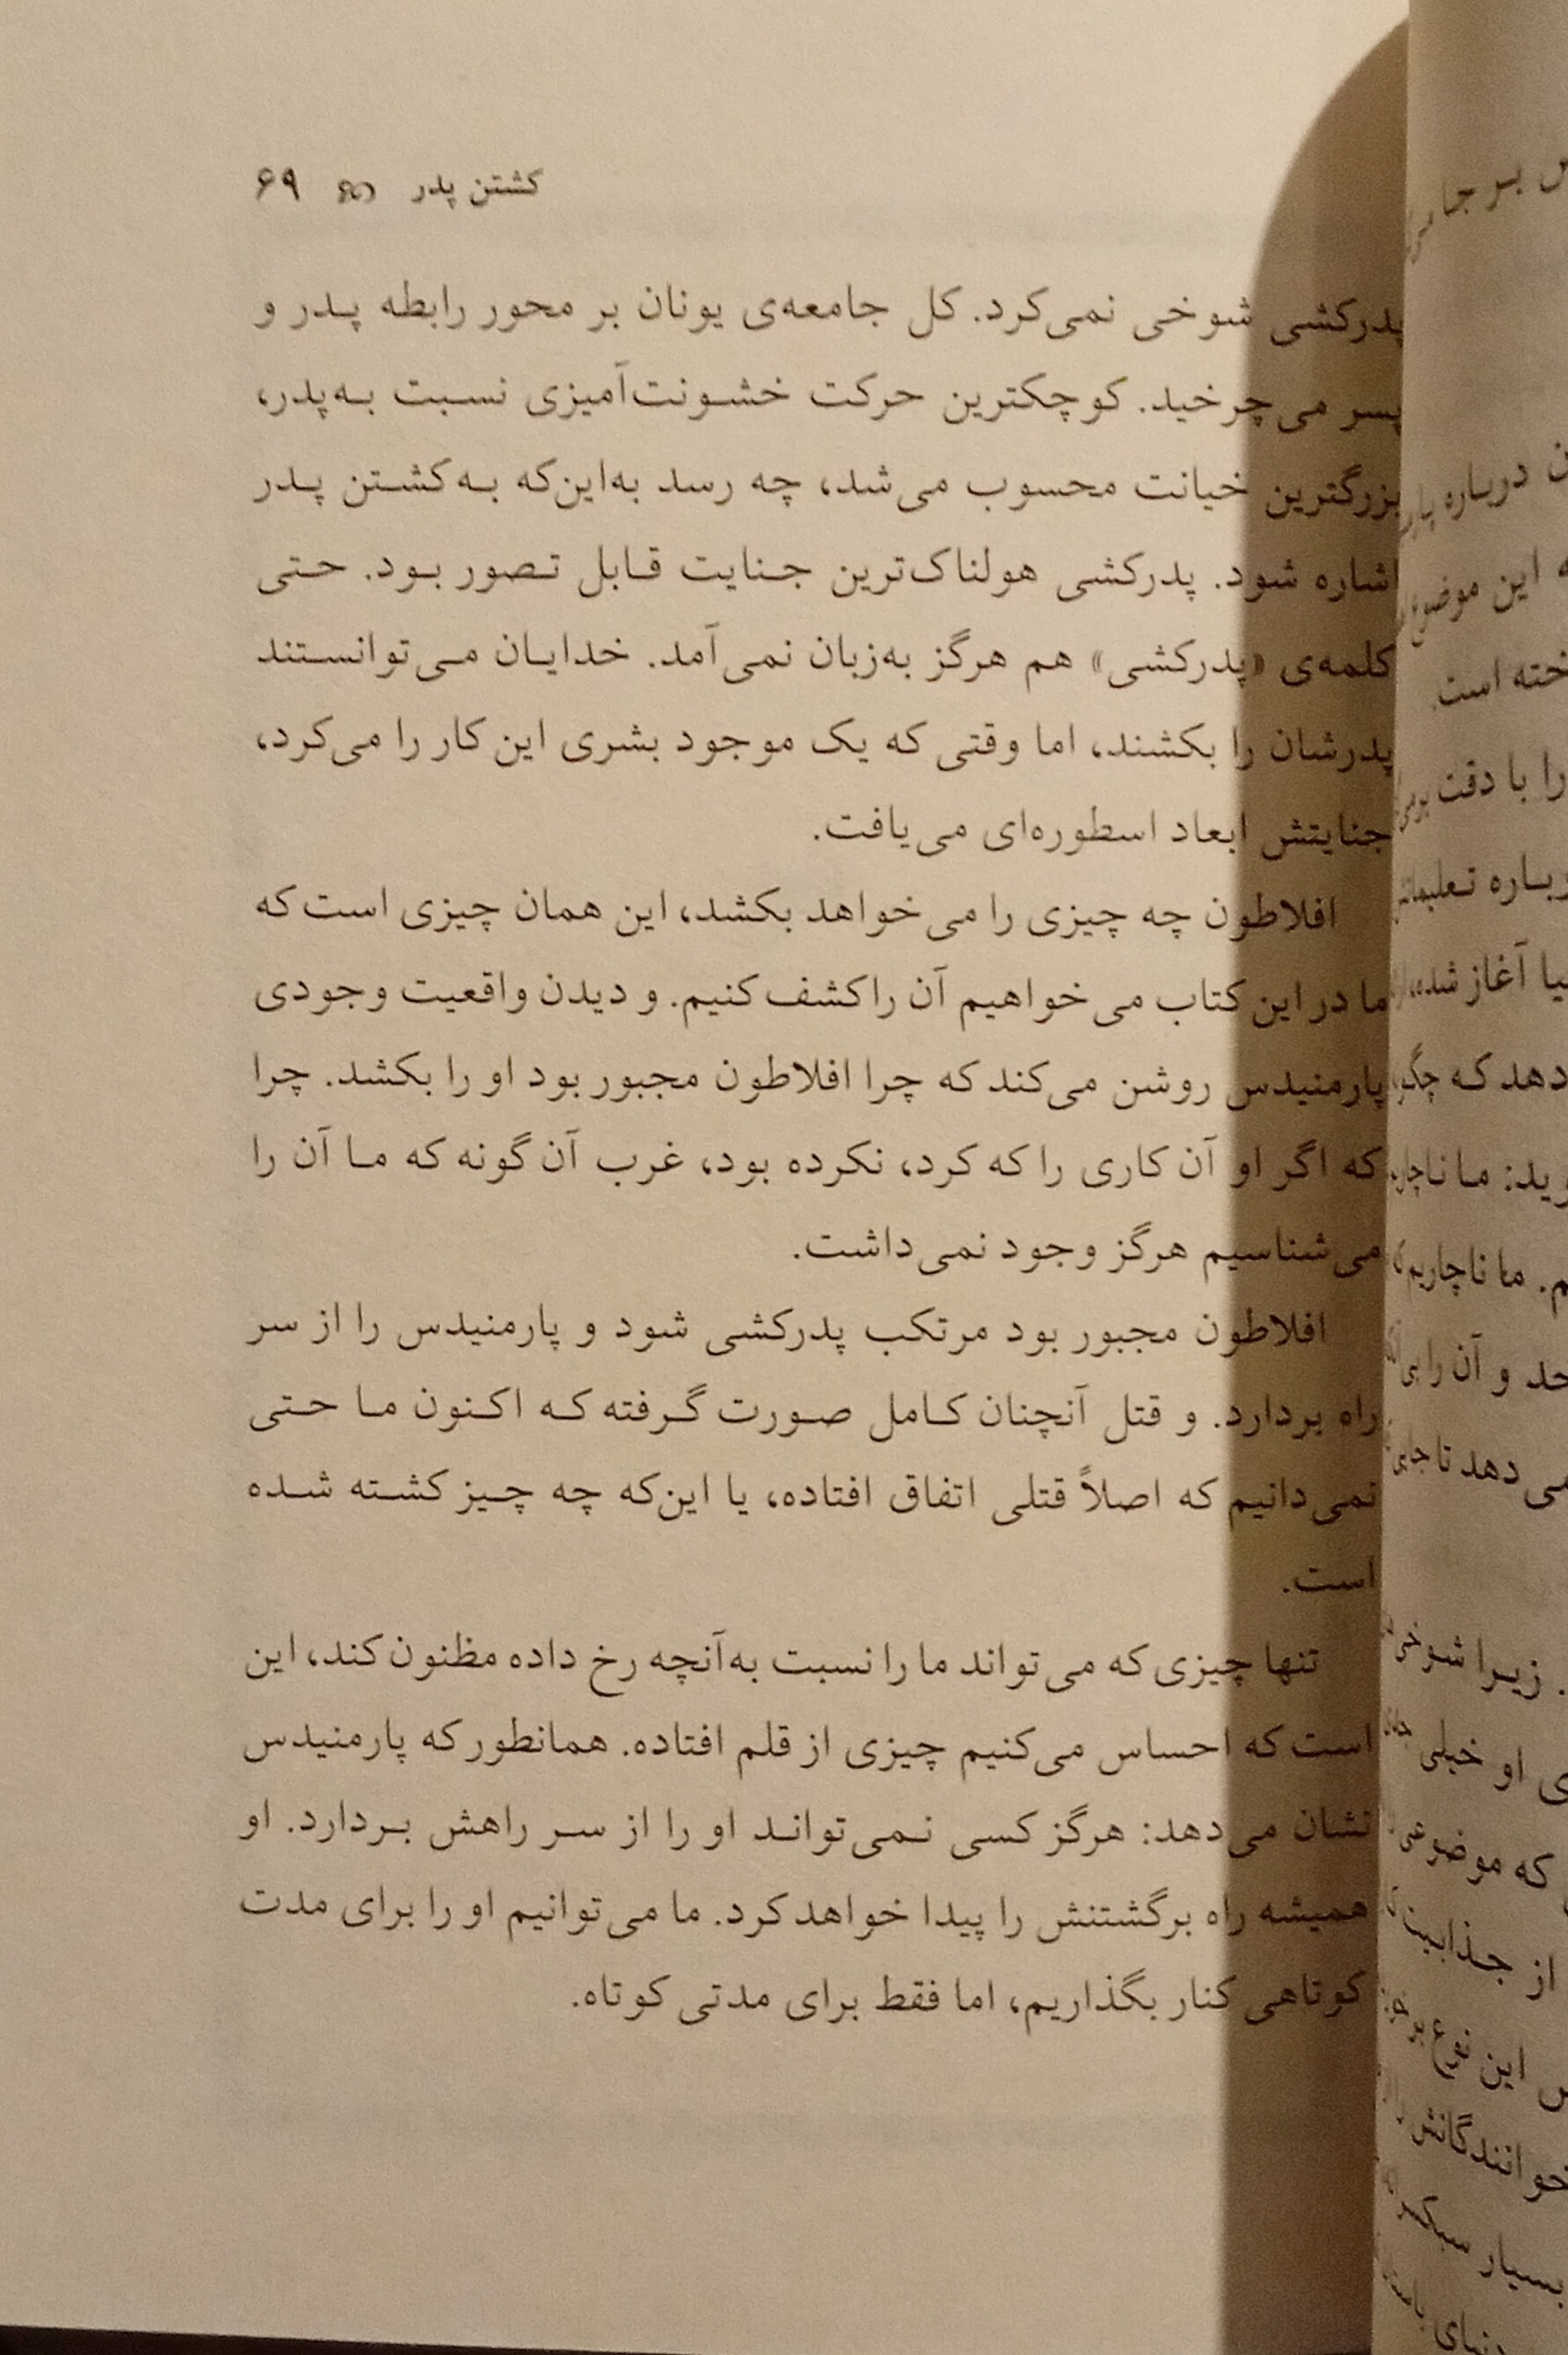 کشتن پدر ۶۹
پدرکشی شوخی نمی‌کرد. کل جامعه‌ی یونان بر محور رابطه پدر و
پسر می‌چرخید. کوچکترین حرکت خشونت‌آمیزی نسبت به‌پدر،
بزرگترین خیانت محسوب می‌شد، چه رسد به‌این‌که به‌کشتن پدر
اشاره شود. پدرکشی هولناک‌ترین جنایت قابل تصور بود. حتی
کلمه‌ی «پدرکشی» هم هرگز به‌زبان نمی‌آمد. خدایان می‌توانستند
پدرشان را بکشند، اما وقتی که یک موجود بشری این کار را می‌کرد،
جنایتش ابعاد اسطوره‌ای می‌یافت.
افلاطون چه چیزی را می‌خواهد بکشد، این همان چیزی است که
ما در این کتاب می‌خواهیم آن را کشف کنیم. و دیدن واقعیت وجودی
پارمنیدس روشن می‌کند که چرا افلاطون مجبور بود او را بکشد. چرا
که اگر او آن کاری را که کرد، نکرده بود، غرب آن گونه که ما آن را
می‌شناسیم هرگز وجود نمی‌داشت.
افلاطون مجبور بود مرتکب پدرکشی شود و پارمنیدس را از سر
راه بردارد. و قتل آنچنان کامل صورت گرفته که اکنون ما حتی
نمی‌دانیم که اصلاً قتلی اتفاق افتاده، یا این‌که چه چیز کشته شده
است.
تنها چیزی که می‌تواند ما را نسبت به‌آنچه رخ داده مظنون کند، این
است که احساس می‌کنیم چیزی از قلم افتاده. همانطور که پارمنیدس
نشان می‌دهد: هرگز کسی نمی‌تواند او را از سر راهش بردارد. او
همیشه راه برگشتنش را پیدا خواهد کرد. ما می‌توانیم او را برای مدت
کوتاهی کنار بگذاریم، اما فقط برای مدتی کوتاه.
بر جا
درباره
این موضوع
است
را با دقت
تعلیماتش
آغاز شده
دهد که
ما
ما ناچاریم
و آن را
می‌دهد تا جای
زیرا شوخی
او خیلی
که موضوعی
از جذابیت
این نوع
خوانندگانش
بسیار
دنیای